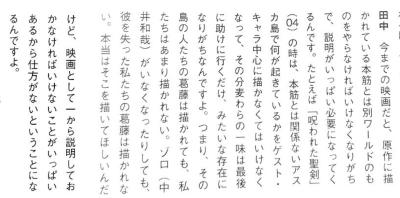 田中　今までの映画だと、原作に描
かれている本筋とは別ワールドのも
のをやらなければいけなくなりがち
で、説明がいっぱい必要になってく
るんです。たとえば『呪われた聖剣』
（04）の時は、本筋とは関係ないアス
カ島で何が起きているかをゲスト・
キャラ中心に描かなくてはいけなく
なって、その分麦わらの一味は最後
に助けに行くだけ、みたいな存在に
なりがちなんですよ。つまり、その
島の人たちの葛藤は描かれても、私
たちはあまり描かれない。ゾロ（中
井和哉）がいなくなったりしても、
彼を失った私たちの葛藤は描かれな
い。本当はそこを描いてほしいんだ
けど、映画として一から説明してお
かなければいけないことがいっぱい
あるから仕方がないということにな
るんですよ。